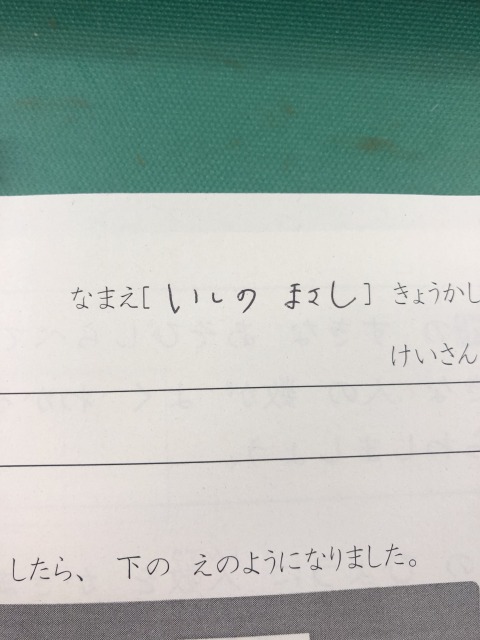 なまえ[いしの まさし] きょうかし
けいさん
したら、 下の えのようになりました。